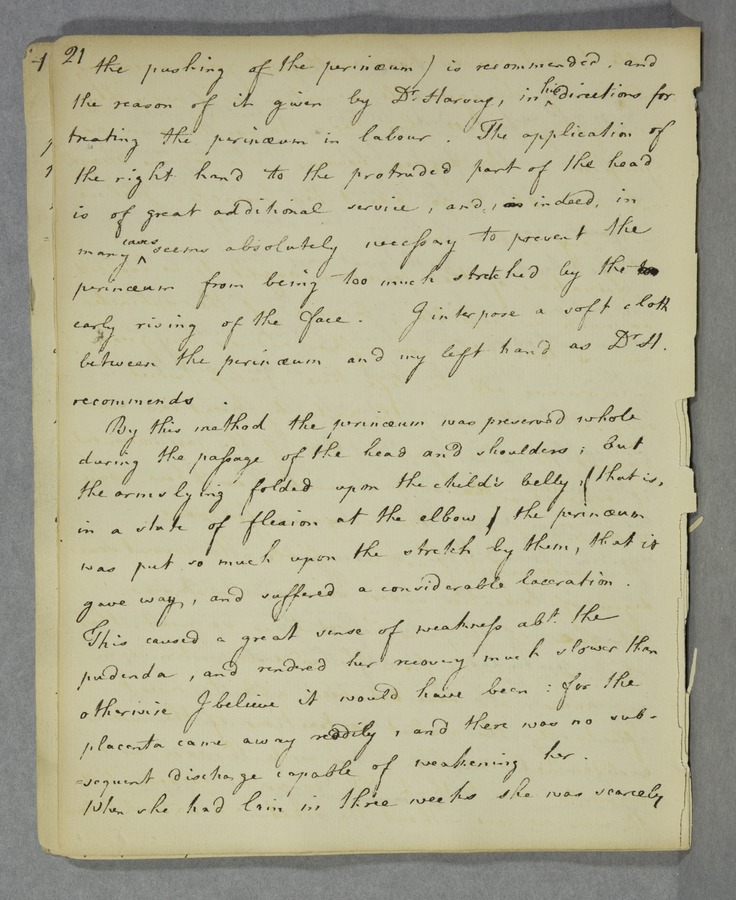 21
the pushing of the perinæum) is recommended, and
the reason of it given by Dr. Harvey, in his directions for
treating the perinæum in labour. The application of
the right hand to the protruded part of the head
is of great additional service, and, indeed, in
many cases seems absolutely necessary to prevent the
perinæum from being too much stretched by the
early rising of the face. I interpose a soft cloth
between the perinæum and my left hand as Dr. H.
recommends.
By this method the perinæum was preserved whole
during the passage of the head and shoulders; but
the arms lying folded upon the child's belly, (that is,
in a state of flexion at the elbow) the perinæum
was put so much upon the stretch by them, that it
gave way, and suffered a considerable laceration.
This caused a great sense of weakness abt. the
pudenda, and rendered her recovery much slower than
otherwise I believe it would have been: for the
placenta came away reddily, and there was no sub-
=sequent discharge capable of weakening her.
When she had lain in three weeks she was scarcely